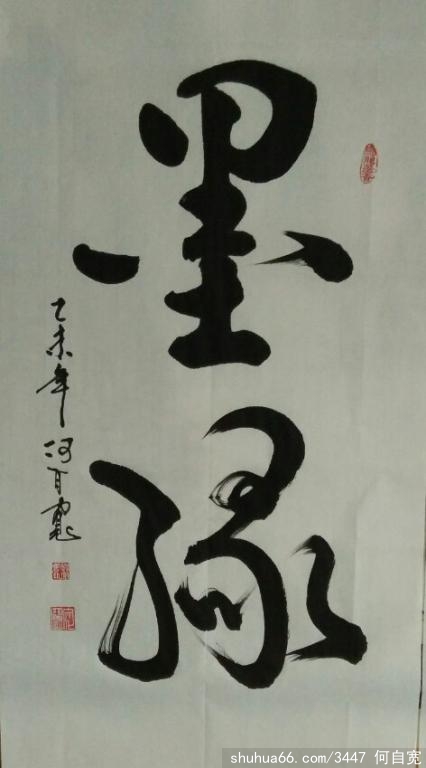 墨缘
乙未年 何自宽
shuhua66.com/3447 何自宽